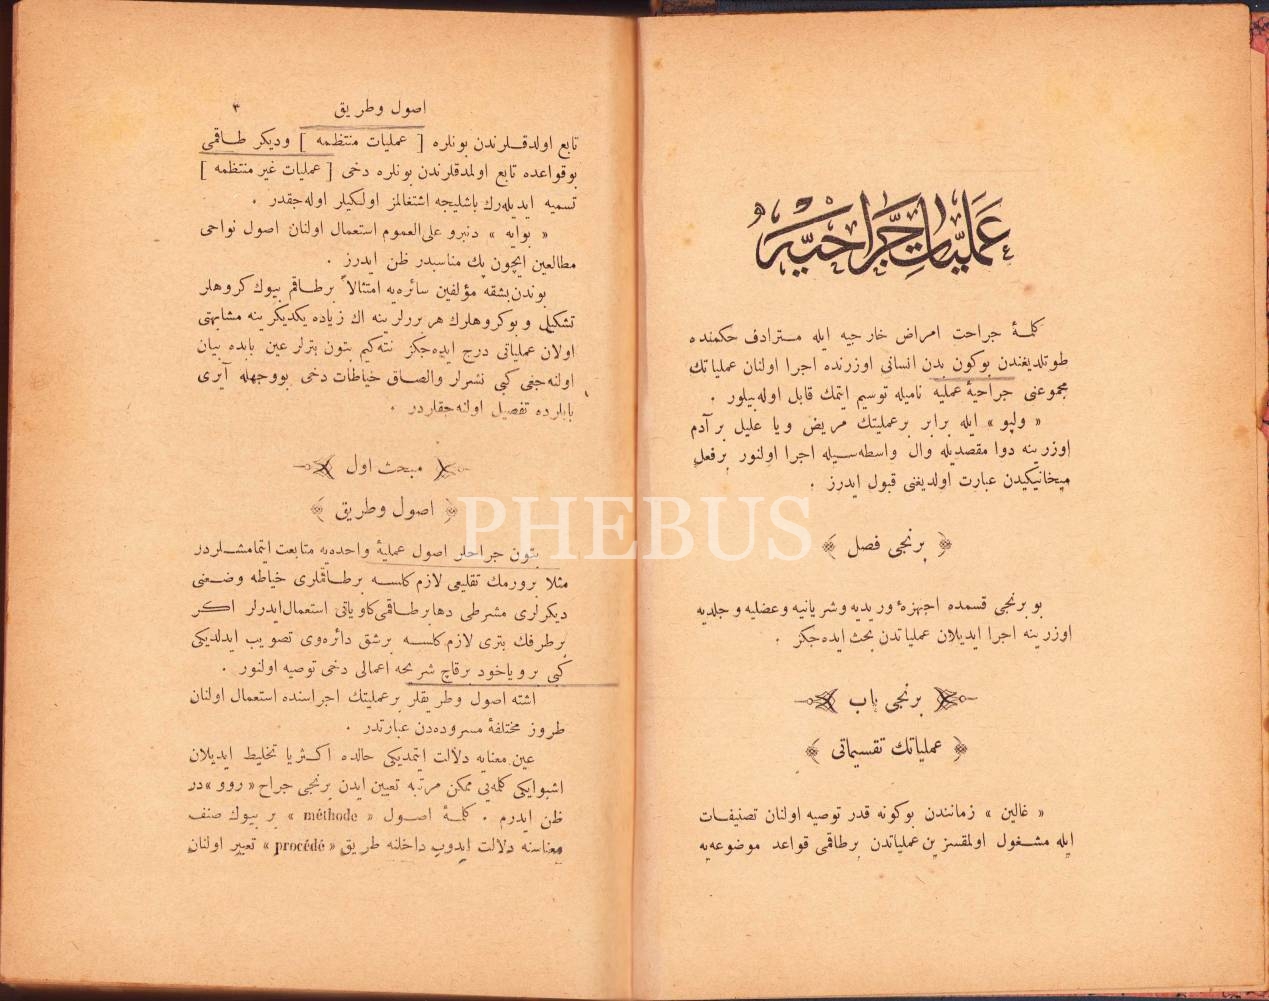 عَمَلِيَّاتِ جَرَّاحِيَّه
كلمهٔ جراحت امراض خارجيه ايله مسترادف حكمنده
طوتلديغندن بوكون بدن انسانی اوزرنده اجرا اولنان عملياتك
مجموعنی جراحيهٔ عمليه ناميله توسيم ايتمك قابل اوله‌بيلور .
« ولپو » ايله برابر برعمليتك مريض ويا عليل برآدم
اوزرينه دوا مقصديله وال واسطه‌سيله اجرا اولنور برفعل
ميخانيكيدن عبارت اولديغنی قبول ايدرز .
برنجی فصل
بو برنجی قسمده اجهزهٔ وريديه وشريانيه وعضليه وجلديه
اوزرينه اجرا ايديلان عملياتدن بحث ايده‌جكز .
برنجی باب
عملياتك تقسيماتی
« غالين » زمانندن بوكونه قدر توصيه اولنان تصنيفات
ايله مشغول اولمقسزين عملياتدن برطاقمی قواعد موضوعه‌يه
اصول وطريق ٣
تابع اولدقلرندن بونلره [ عمليات منتظمه ] وديكر طاقمی
بوقواعده تابع اولمدقلرندن بونلره دخی [ عمليات غير منتظمه ]
تسميه ايديله‌رك باشليجه اشتغالمز اولكيلر اوله‌جقدر .
« بوايه » دنبرو علی‌العموم استعمال اولنان اصول نواحی
مطالعين ايچون پك مناسبدر ظن ايدرز .
بوندن‌بشقه مؤلفين سائره‌يه امتثالاً برطاقم بيوك كروهلر
تشكيل وبوكروهلرك هربررلرينه اك زياده يكديكرينه مشابهتی
اولان عملياتی درج ايده‌جكز نته‌كيم بتون بترلر عين بابده بيان
اولنه‌جغی كبی نشرلر والصاق خياطات دخی بووجهله آيری
بابلرده تفصيل اولنه‌جقاردر .
مبحث اول
اصول وطريق
بتون جراحلر اصول عمليهٔ واحده‌يه متابعت ايتمامشلردر
مثلا برورمك تقليعی لازم كلسه برطاقملری خياطه وضعنی
ديكرلری مشرطی دها برطاقمی‌كاوياتی استعمال‌ايدرلر اكر
برطرفك بتری لازم‌كلسه برشق دائره‌وی تصويب ايدلديكی
كبی برو ياخود برقاچ شريحه اعمالی دخی توصيه اولنور .
اشته اصول وطريقلر برعمليتك اجراسنده استعمال اولنان
طروز مختلفهٔ مسروده‌دن عبارتدر .
عين معنايه دلالت ايتمديكی حالده اكثريا تخليط ايديلان
اشبوايكی كله‌يی ممكن مرتبه تعيين ايدن برنجی جراح « روو »در
ظن ايدرم . كلمهٔ اصول « méthode » بر بيوك صنف
معناسنه دلالت ايدوب داخلنه طريق « procédé » تعبير اولنان
PHEBUS